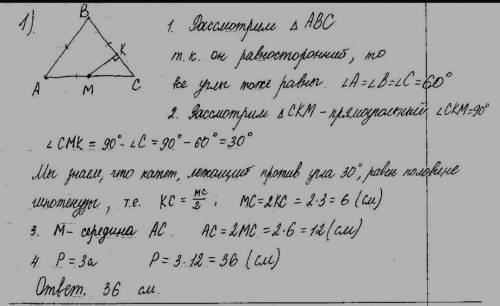 1).
B
K
A
M
C
1. Рассмотрим △ ABC
т.к. он равносторонний, то
все углы тоже равны. ∠A=∠B=∠C=60°
2. Рассмотрим △CKM-прямоугольный ∠CKM=90°
∠CMK = 90°-∠C = 90°-60°=30°
Мы знаем, что катет, лежащий против угла 30°, равен половине
гипотенузы, т.е. KC = MC/2 ; MC=2KC = 2·3 = 6 (см)
3. M- середина AC. AC = 2MC = 2·6 = 12 (см)
4. P = 3a P = 3·12 = 36 (см)
Ответ. 36 см.